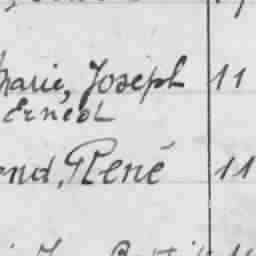 Marie, Joseph 11
Ernest
ond, René 11